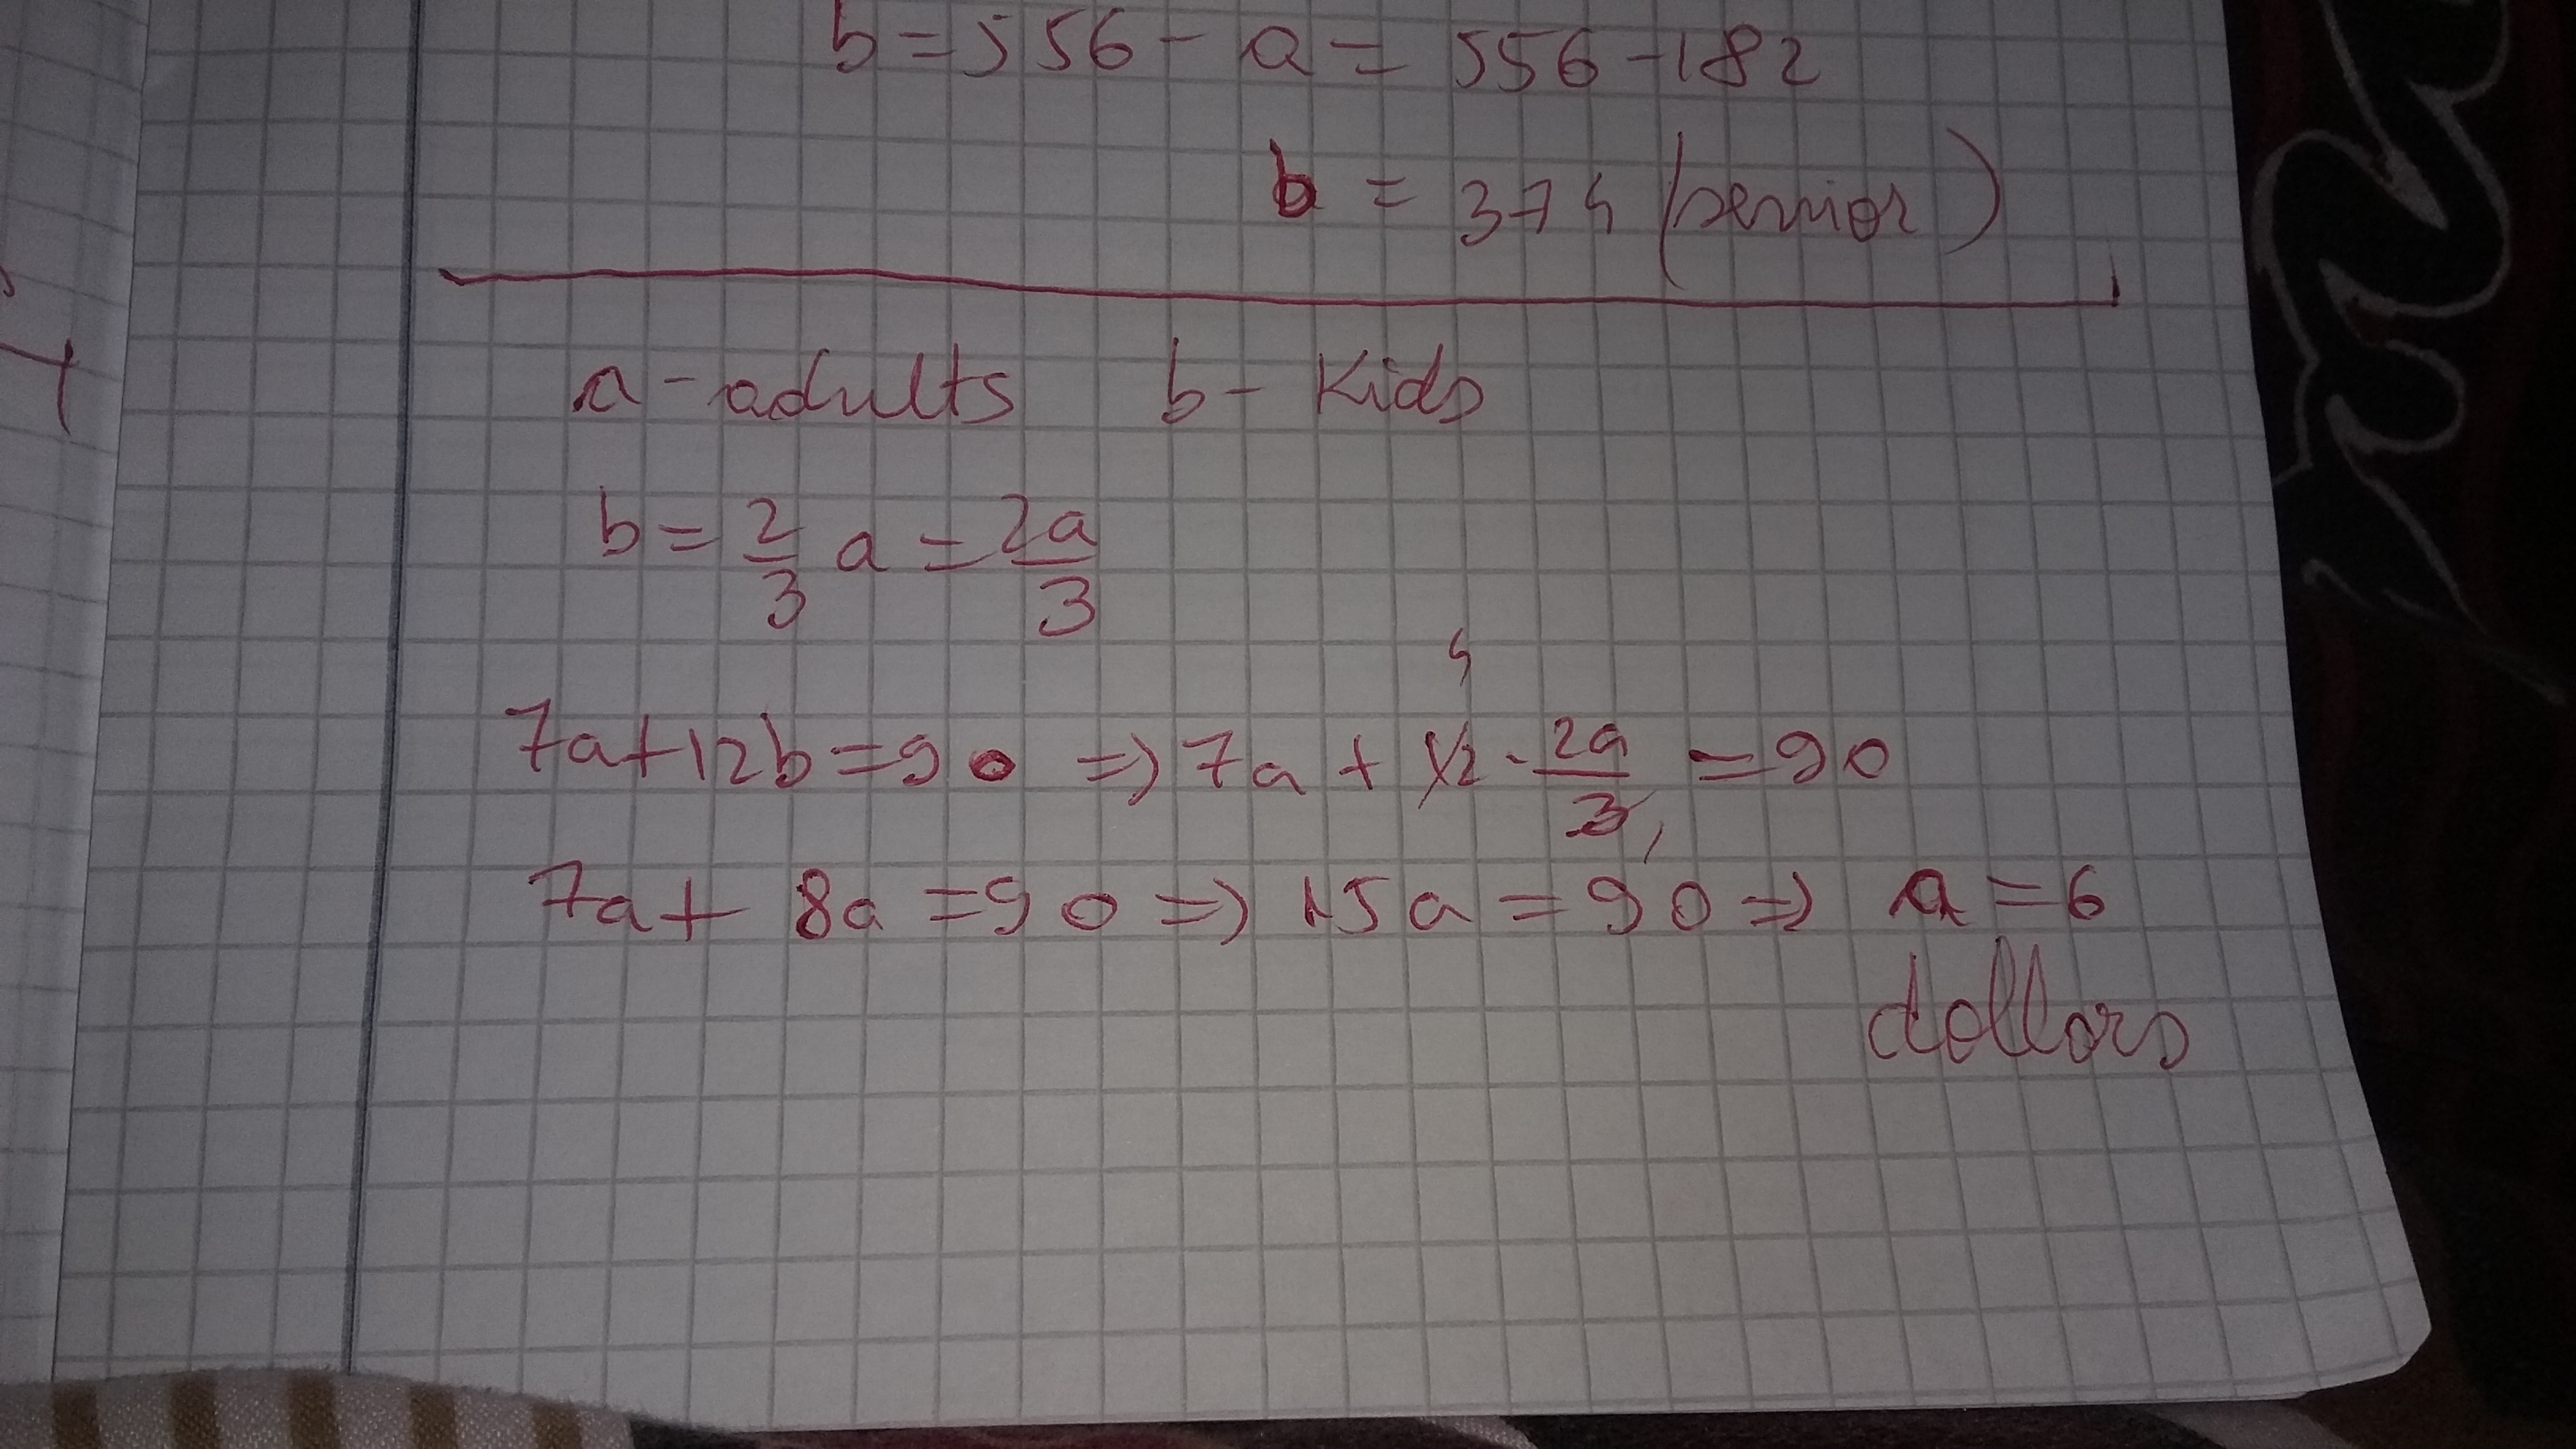 b = 556 - a = 556 - 182
b = 374 (senior)
a - adults b - Kids
b = 2/3 a = 2a/3
4
7a + 12b = 90 => 7a + 12 · 2a/3 = 90
1
7a + 8a = 90 => 15a = 90 => a = 6
dollars